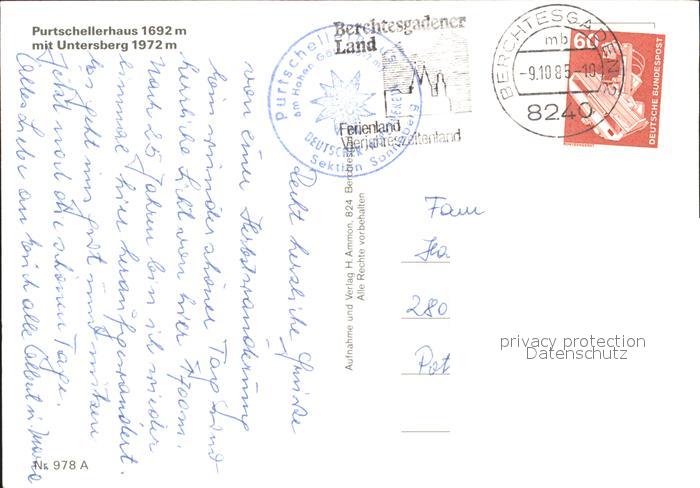 Purtschellerhaus 1692 m
mit Untersberg 1972 m
Purtschellerhaus
am Hohen Göll
DEUTSCHER ALPENVEREIN
Sektion Sonneberg
Berchtesgadener
Land
Ferienland
Vierjahreszeitenland
BERCHTESGADEN
mb
-9.10.85-10
8240
60
DEUTSCHE BUNDESPOST
Recht herzliche Grüße
von einer Herbstwanderung
bei wunderschöner Tag und
herrliche Sicht von hier 1700m.
Nach 25 Jahren bin ich wieder
einmal hier heraufgewandert.
Es geht uns gut und
noch schöne Tage.
Alles Liebe an Euch alle
Aufnahme und Verlag H. Ammon, 824 Berchtesgaden
Alle Rechte vorbehalten
Fam
Ha
280
Pot
privacy protection
Datenschutz
Nr. 978 A